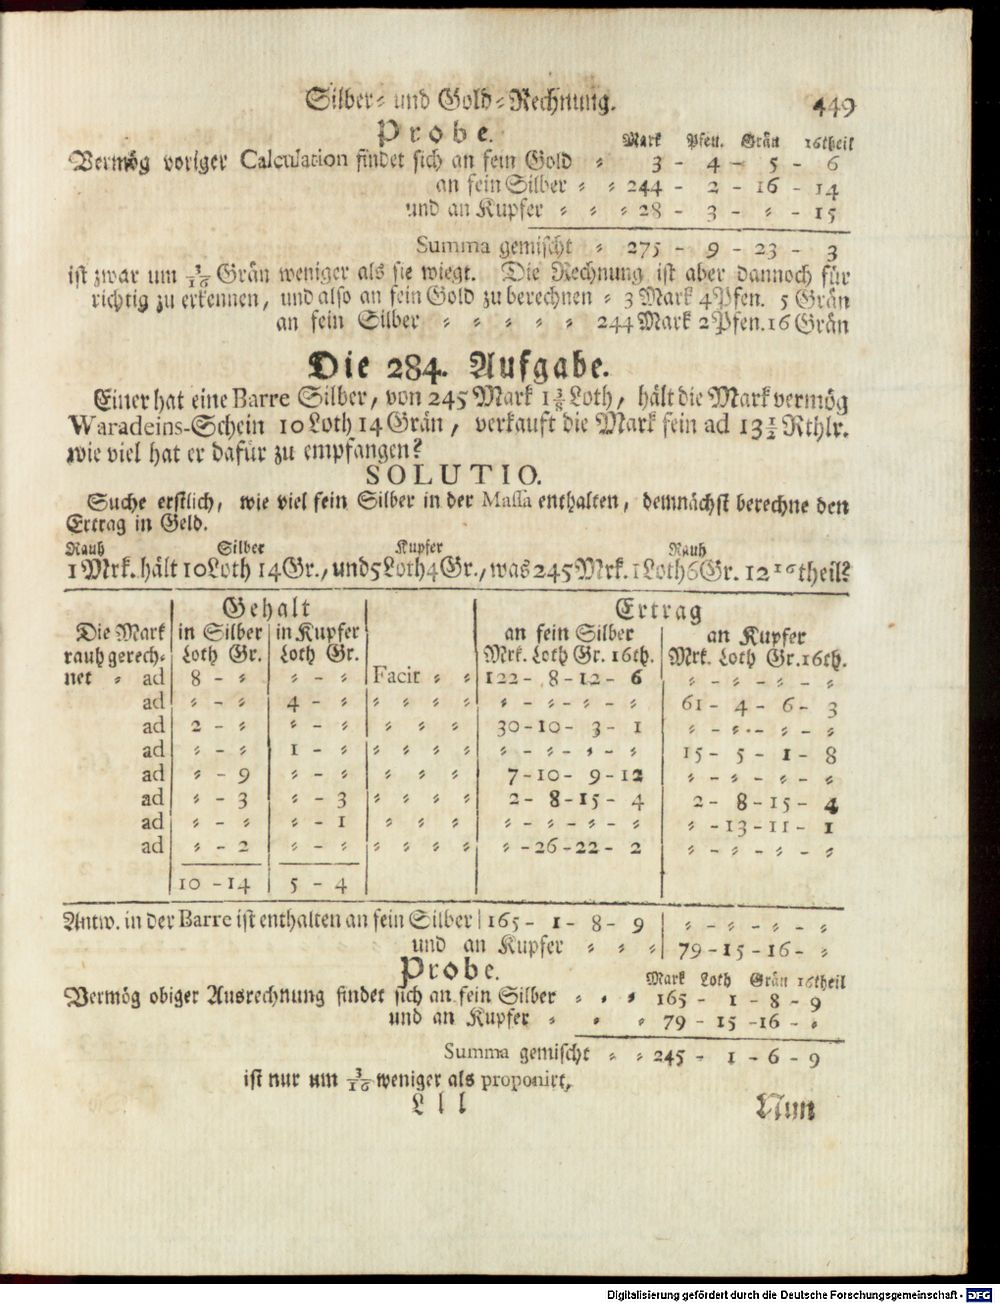 Silber- und Gold-Rechnung. 449
Probe.
Mark Pfen. Grän 16theil
Vermög voriger Calculation findet sich an fein Gold ⸗ 3 - 4 - 5 - 6
an fein Silber ⸗ ⸗ 244 - 2 - 16 - 14
und an Kupfer ⸗ ⸗ ⸗ 28 - 3 - ⸗ - 15
Summa gemischt ⸗ 275 - 9 - 23 - 3
ist zwar um 3/16 Grän weniger als sie wiegt. Die Rechnung ist aber dannoch für
richtig zu erkennen, und also an fein Gold zu berechnen ⸗ 3 Mark 4 Pfen. 5 Grän
an fein Silber ⸗ ⸗ ⸗ ⸗ ⸗ 244 Mark 2 Pfen. 16 Grän
Die 284. Aufgabe.
Einer hat eine Barre Silber, von 245 Mark 1 3/8 Loth, hält die Mark vermög
Waradeins-Schein 10 Loth 14 Grän, verkauft die Mark fein ad 13 1/2 Rthlr.
wie viel hat er dafür zu empfangen?
SOLUTIO.
Suche erstlich, wie viel fein Silber in der Massa enthalten, demnächst berechne den
Ertrag in Geld.
Rauh Silber Kupfer Rauh
1 Mrk. hält 10 Loth 14 Gr., und 5 Loth 4 Gr., was 245 Mrk. 1 Loth 6 Gr. 12 16theil?
Gehalt Ertrag
Die Mark in Silber in Kupfer an fein Silber an Kupfer
rauh gerech⸗ Loth Gr. Loth Gr. Mrk. Loth Gr. 16th. Mrk. Loth Gr. 16th.
net ⸗ ad 8 - ⸗ ⸗ - ⸗ Facit ⸗ ⸗ 122 - 8 - 12 - 6 ⸗ - ⸗ - ⸗ - ⸗
ad ⸗ - ⸗ 4 - ⸗ ⸗ ⸗ ⸗ ⸗ ⸗ - ⸗ - ⸗ - ⸗ 61 - 4 - 6 - 3
ad 2 - ⸗ ⸗ - ⸗ ⸗ ⸗ ⸗ 30 - 10 - 3 - 1 ⸗ - ⸗ - ⸗ - ⸗
ad ⸗ - ⸗ 1 - ⸗ ⸗ ⸗ ⸗ ⸗ ⸗ - ⸗ - ⸗ - ⸗ 15 - 5 - 1 - 8
ad ⸗ - 9 ⸗ - ⸗ ⸗ ⸗ ⸗ 7 - 10 - 9 - 12 ⸗ - ⸗ - ⸗ - ⸗
ad ⸗ - 3 ⸗ - 3 ⸗ ⸗ ⸗ ⸗ 2 - 8 - 15 - 4 2 - 8 - 15 - 4
ad ⸗ - ⸗ ⸗ - 1 ⸗ ⸗ ⸗ ⸗ - ⸗ - ⸗ - ⸗ ⸗ - 13 - 11 - 1
ad ⸗ - 2 ⸗ - ⸗ ⸗ ⸗ ⸗ ⸗ ⸗ - 26 - 22 - 2 ⸗ - ⸗ - ⸗ - ⸗
10 - 14 5 - 4
Antw. in der Barre ist enthalten an fein Silber 165 - 1 - 8 - 9 ⸗ - ⸗ - ⸗ - ⸗
und an Kupfer ⸗ ⸗ ⸗ 79 - 15 - 16 - ⸗
Probe.
Mark Loth Grän 16theil
Vermög obiger Ausrechnung findet sich an fein Silber ⸗ ⸗ ⸗ 165 - 1 - 8 - 9
und an Kupfer ⸗ ⸗ ⸗ 79 - 15 - 16 - ⸗
Summa gemischt ⸗ ⸗ 245 - 1 - 6 - 9
ist nur um 3/16 weniger als proponirt.
Lll Nun
Digitalisierung gefördert durch die Deutsche Forschungsgemeinschaft - DFG